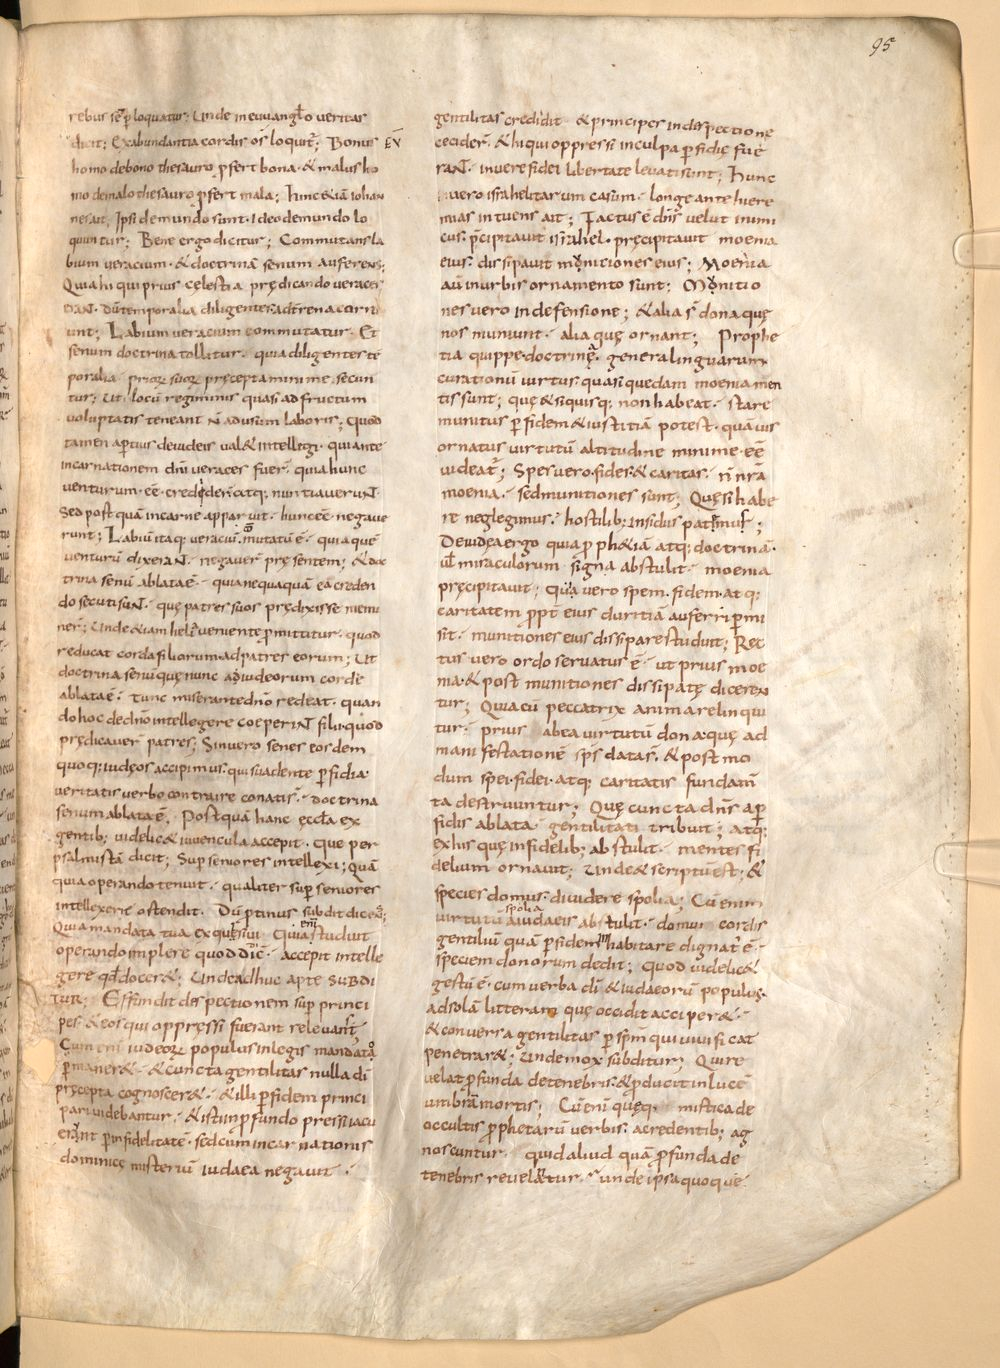 95
rebus sēp loquatur; Unde in euvangło veritas
dicit; Exabundantia cordis ōs loquit̄; Bonus EV̄
homo de bono thesauro p̄fert bona · & malus ho
mo de malo thesauro p̄fert mala; hinc &iā iohan
nes ait, Ipsi de mundo sunt · Ideo de mundo lo
quuntur; Bene ergo dicitur; Commutans la
bium veracium · & doctrinā senum auferens;
Quia hi qui prius cęlestia prędicando veraces
eraN · dū temporalia diligentes ad terrena corru
unt; Labium veracium commutatur · Et
senum doctrina tollitur · quia diligentes tē
poralia priorꝝ suorꝝ pręcepta minime secun
tur; Ut locū regiminis quasi ad fructum
voluptatis teneant n̄ ad usum laboris; Quod
tamen aptius de iudeis val& intellegi · qui ante
incarnationem dnī veraces fuer̄ · quia hunc
venturum · eē · crediderunt atq; nuntiaveruN ·
Sed postquā in carne apparuit · hunc eē negave
runt; Labiū itaq; veraciū · mutatū ē · quia quē
venturū dixeraN · negaver̄ pręsentem; & doc
trina senū ablata ē · quia nequaquā ea creden
do secuti suN · quę patres suos prędixisse memi
ner̄; Unde &iam heliȩ veniente p̄mittitur · quod
reducat corda filiorum ad patres eorum; Ut
doctrina senū quę nunc a iudeorum corde
ablata ē · tunc miserante dn̄o redeat · quan
do hoc de dn̄o intellegere coeperiN filii · quod
prędicaver̄ patres; Sin vero senes eosdem
quoq; iudęos accipimus · qui suadente p̄fidia ·
veritatis verbo contraire conati s̄ · doctrina
senum ablata ē; Postquā hanc ęccła ex
gentib; videlic& iuvencula accepit · que per
psalmistā dicit; Sup seniores intellexi; quā
quia operando tenuit · qualiter sup seniores
intellexerit ostendit · Dū p̄tinus subdit dicens;
Quia mandata tua exquisivi Quia enī studuit
operando implere quod dic̄ · accepit intelle
gere qd docer&; Unde adhuc apte SUBDI
TUR; Effundit despectionem sup princi
pes · & eos qui oppressi fuerant relevans;
Cum enī iudeorꝝ populus in legis mandato
p̄maner& · & cuncta gentilitas nulla dī
pręcepta cognoscer& · & illi p̄fidem princi
pari videbantur · & isti in p̄fundo pressi iacu
erant p̄ infidelitatē · sed cum incarnationis
dominicę misteriū iudaea negavit ·
gentilitas credidit & principes in despectionē
cecider̄ · & hi qui oppressi in culpa p̄fidię fue
raN · in vere fidei libertate levati sunt; Hunc
vero israhelitarum casum · longe ante hiere
mias intuens ait; Factus ē dn̄s velut inimi
cus · p̄cipitavit israhel · pręcipitavit moenia
eius · dissipavit monitiones eius; Moenia
aū in urbis ornamento sunt; Monitio
nes vero in defensione; & alia s̄ dona quę
nos muniunt · alia quę ornant; Prophe
tia quippe · doctrina · genera linguarum ·
curationū virtus · quasi quedam moenia men
tis sunt; quę & si quisq; non habeat · stare
munitus p̄ fidem & iustitiā potest · quāvis
ornatus virtutū altitudine minime · eē
videat̄; Spes vero · fides & caritas · n̄ nrā
moenia · sed munitiones sunt; Quę si habe
re neglegimus · hostilib; insidiis patemus;
De iudęa ergo quia p̄ph&iā atq; doctrinā ·
vł miraculorum signa abstulit · moenia
pręcipitavit; Quia vero spem · fidem · atq;
caritatem p̄pt̄ eius duritiā auferri p̄mi
sit · munitiones eius dissipare studuit; Rec
tus vero ordo servatus ē · ut prius moe
nia · & post munitiones dissipatę diceren
tur; Quia cū peccatrix anima relinqui
tur · prius ab ea virtutū dona quę ad
manifestationē sp̄s data s̄ · & post mo
dum spei · fidei · atq; caritatis fundam̄
ta destruuntur; Quę cuncta dn̄s a p̄
fidis ablata · gentilitati tribuit; atq;
ex his quę infidelib; abstulit · mentes fi
delium ornavit; Unde & scriptū est; &
species domus · dividere spolia; Cū enim
virtutū spolia a iudaeis abstulit · domui cordis
gentiliū quā p̄ fidem inhabitare dignat̄ ē ·
speciem donorum dedit; Quod videlic&
gestū ē · cum verba dī & iudaeorū populus ·
ad solā litteram quę occidit acciper& ·
& conversa gentilitas p̄ sp̄m qui vivificat
penetrar&; Unde mox subditur; Qui re
velat p̄funda de tenebris · & p̄ducit in lucē
umbram mortis; Cū enī quęq; mistica de
occultis p̄phetarū verbis · a credentib; ag
noscuntur · quid aliud quā p̄funda de
tenebris revelantur · unde ipsa quoque